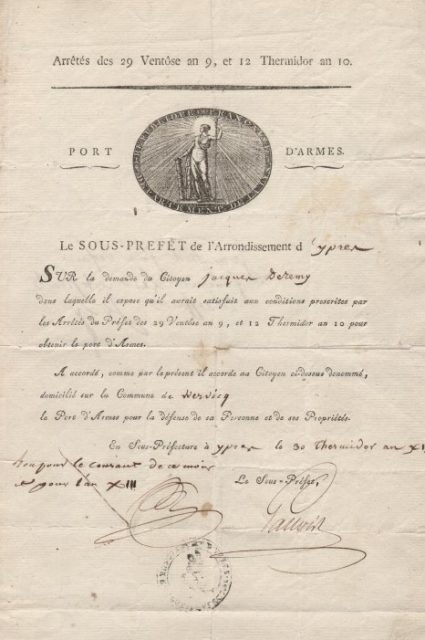 Arrêtés des 29 Ventôse an 9, et 12 Thermidor an 10.
PORT D'ARMES.
LE SOUS-PREFÊT de l'Arrondissement d'ypres
SUR la demande du Citoyen jacques Deremy
dans laquelle il expose qu'il aurait satisfait aux conditions prescrites par
les Arrêtés du Préfet des 29 Ventôse an 9, et 12 Thermidor an 10 pour
obtenir le port d'Armes.
A accordé, comme par le présent il accorde au Citoyen ci-dessus dénommé,
domicilié sur la Commune de Wervicq
le Port d'Armes pour la défense de sa Personne et de ses Propriétés.
En Sous-Préfecture à ypres le 30 thermidor an XI
bon pour le courant de ce mois
et pour l'an XIII
Le Sous-Préfet,